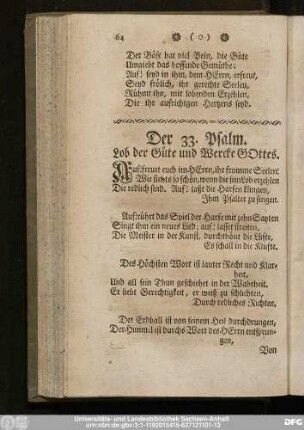 64 ( o )
Der Böse hat viel Pein, die Güte
Umgiebt das hoffende Gemüthe:
Auf! seyd in ihm, dem HErrn, erfreut,
Seyd frölich, ihr gerechte Seelen,
Rühmt ihn, mit lobenden Erzählen,
Die ihr aufrichtigen Hertzens seyd.
Der 33. Psalm.
Lob der Güte und Wercke GOttes.
Auf! freuet euch im HErrn, ihr fromme Seelen!
Wie steht es so schön, wenn die sein Lob erzählen
Die redlich sind. Auf! laßt die Harfen klingen,
Ihm Psalter zu singen.
Auf! rühret das Spiel der Harfe mit zehn Sayten
Singt ihm ein neues Lied; auf! lasset streiten,
Die Meister in der Kunst, durchthönt die Lüfte,
Es schall in die Klüfte.
Des Höchsten Wort ist lauter Recht und Klar-
heit,
Und all sein Thun geschiehet in der Wahrheit.
Er liebt Gerechtigkeit, er weiß zu schlichten,
Durch redliches Richten.
Der Erdball ist von seinem Heil durchdrungen,
Der Himmel ist durchs Wort des HErrn entsprun-
gen,
Von
Universitäts- und Landesbibliothek Sachsen-Anhalt
urn:nbn:de:gbv:3:1-1192015415-627121101-13